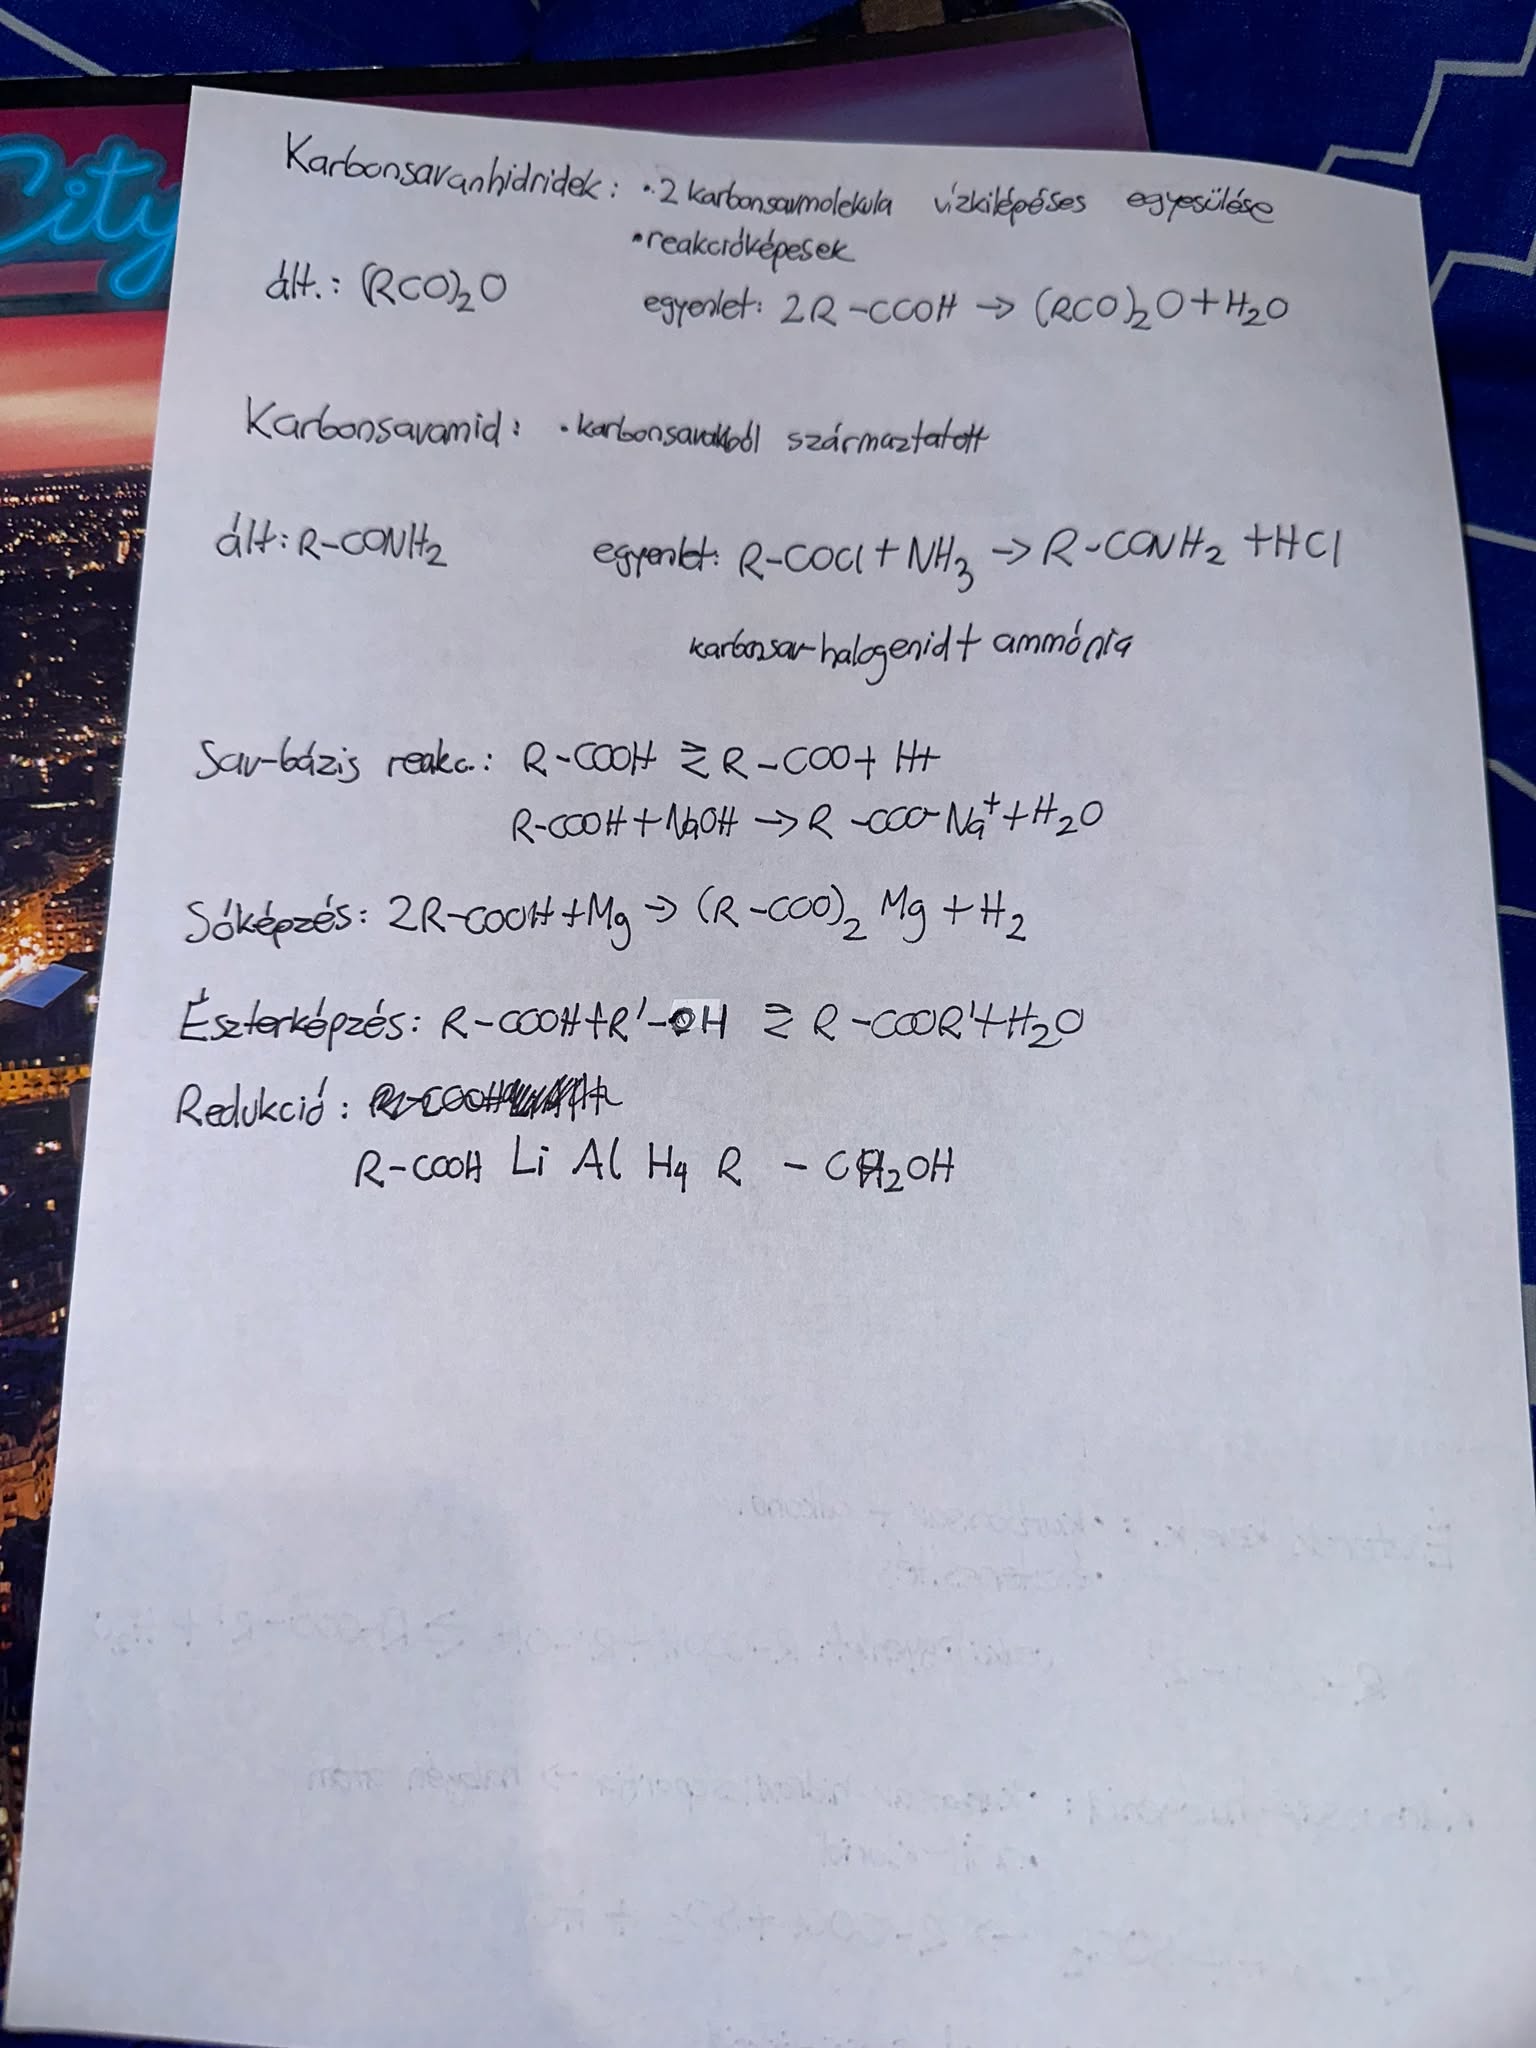 City
Karbonsavanhidridek: • 2 karbonsavmolekula vízkilépéses egyesülése
• reakcióképesek
ált.: (RCO)₂O egyenlet: 2R-COOH → (RCO)₂O+H₂O
Karbonsavamid: • karbonsavakból származtatott
ált: R-CONH₂ egyenlet: R-COCl + NH₃ → R-CONH₂ + HCl
karbonsav-halogenid + ammónia
Sav-bázis reakc.: R-COOH ⇄ R-COO+ H+
R-COOH+NaOH → R-COO⁻Na⁺+H₂O
Sóképzés: 2R-COOH+Mg → (R-COO)₂ Mg + H₂
Észterképzés: R-COOH+R'-OH ⇄ R-COOR'+H₂O
Redukció:
R-COOH Li Al H₄ R - CH₂OH